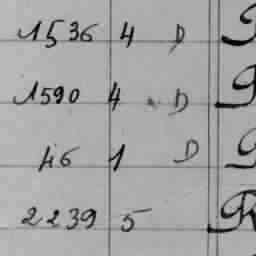 1536 4 D
1590 4 D
46 1 D
2239 5